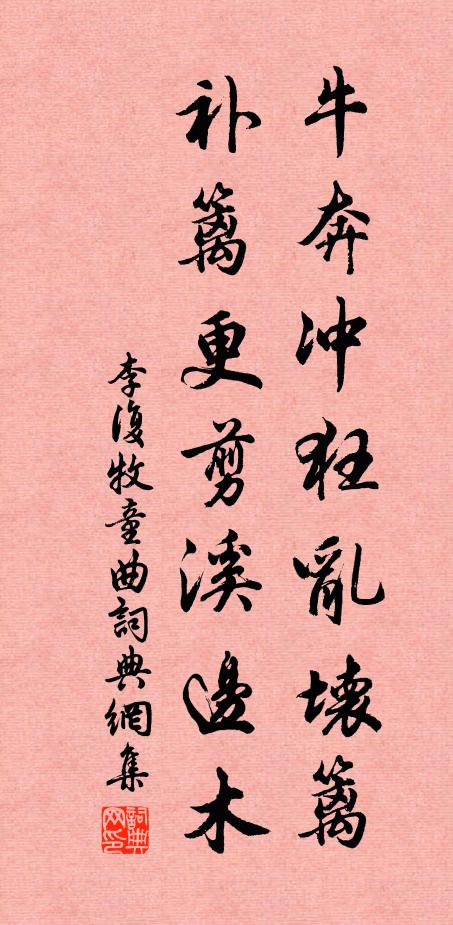 牛奔冲狂亂壞篱
补篱更剪溪邊木
李復牧童曲詞典網集
詞典网印